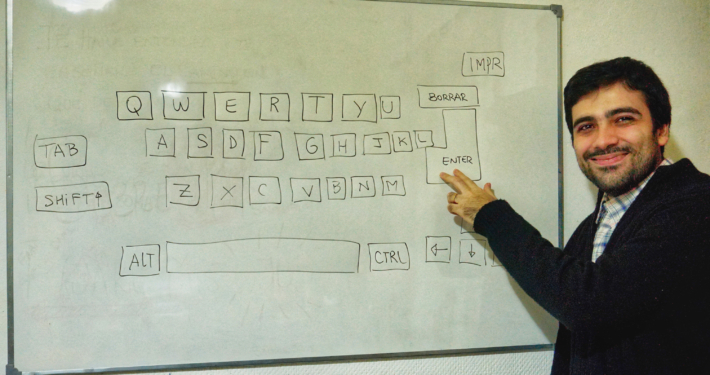 IMPR
Q W E R T Y U BORRAR
TAB A S D F G H J K L ENTER
SHIFT↑ Z X C V B N M
ALT CTRL ← ↓